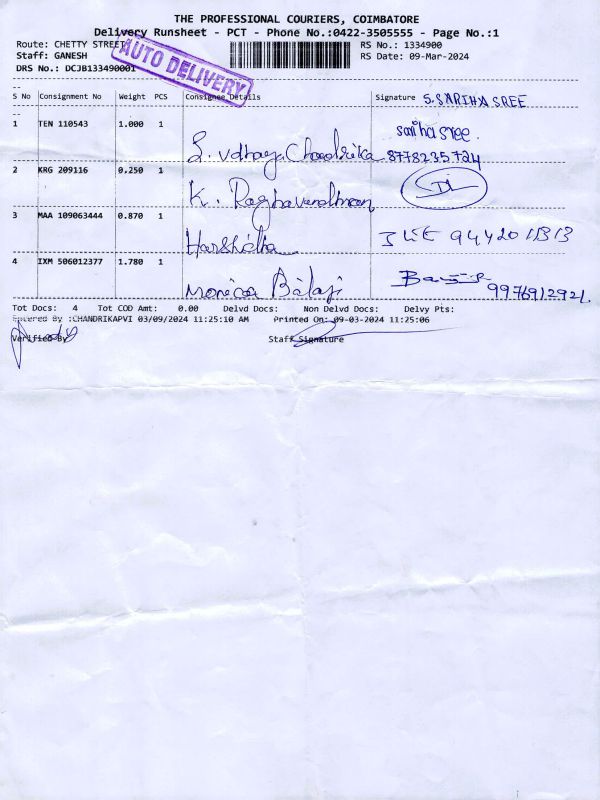 THE PROFESSIONAL COURIERS, COIMBATORE
Delivery Runsheet - PCT - Phone No.:0422-3505555 - Page No.:1
Route: CHETTY STREET
RS No.: 1334900
Staff: GANESH
RS Date: 09-Mar-2024
DRS No.: DCJB133490001
AUTO DELIVERY
S No Consignment No Weight PCS Consignee Details Signature S.SARIHA SREE
1 TEN 110543 1.000 1 S. Udhaya Chandrika sariha sree. 8778235724
2 KRG 209116 0.250 1 K. Raghavendhran
3 MAA 109063444 0.870 1 Harshitha 9442011313
4 IXM 506012377 1.780 1 Monica Balaji 9976912921
Tot Docs: 4 Tot COD Amt: 0.00 Delvd Docs: Non Delvd Docs: Delvy Pts:
Entered By :CHANDRIKAPVI 03/09/2024 11:25:10 AM Printed On: 09-03-2024 11:25:06
Verified By Staff Signature